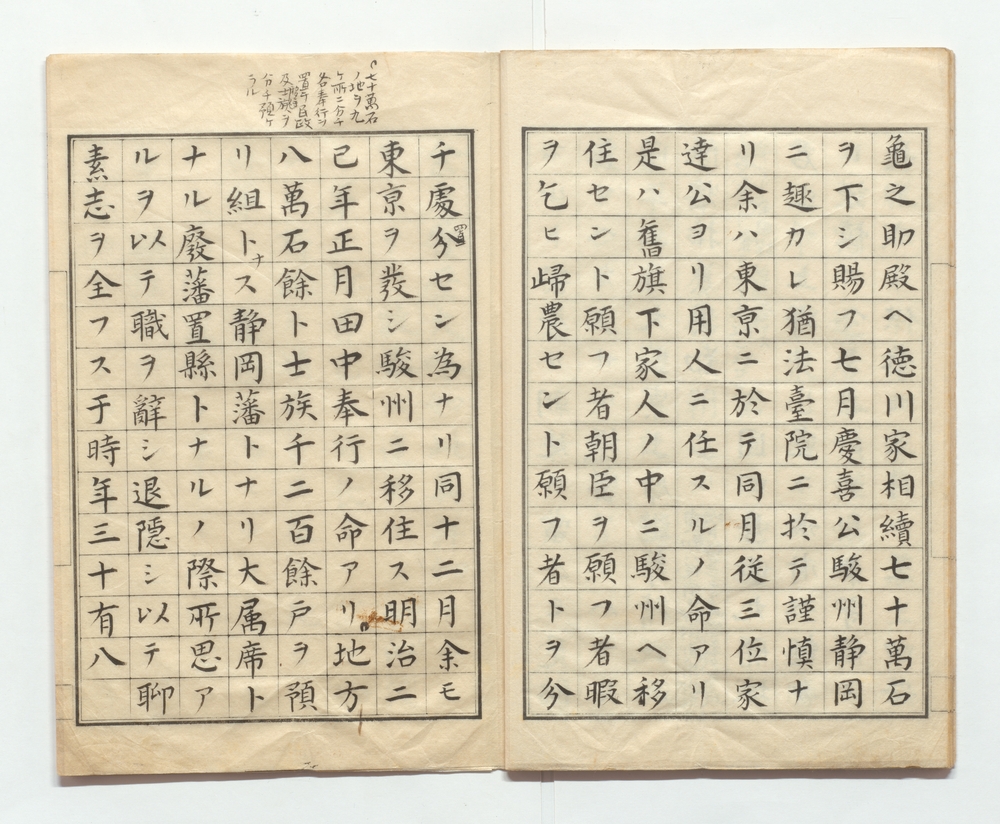 龜之助殿ヘ徳川家相續七十萬石
ヲ下シ賜フ七月慶喜公駿州静岡
ニ趣カレ猶法臺院ニ於テ謹慎ナ
リ余ハ東京ニ於テ同月従三位家
達公ヨリ用人ニ任スルノ命アリ
是ハ舊旗下家人ノ中ニ駿州ヘ移
住セント願フ者朝臣ヲ願フ者暇
ヲ乞ヒ歸農セント願フ者トヲ分
七十萬石
ノ地ヲ九
ケ所ニ分チ
各奉行ヲ
置キ民政
及士族ヲ
分チ預ケ
ラル
チ處分セン為ナリ同十二月余モ
置
東亰ヲ發シ駿州ニ移住ス明治二
己年正月田中奉行ノ命アリ地方
八萬石餘ト士族千二百餘戸ヲ預
リ組トス静岡藩トナリ大属席ト
ナ
ナル廢藩置縣トナルノ際所思ア
ルヲ以テ職ヲ辭シ退隠シ以テ聊
素志ヲ全フス于時年三十有八